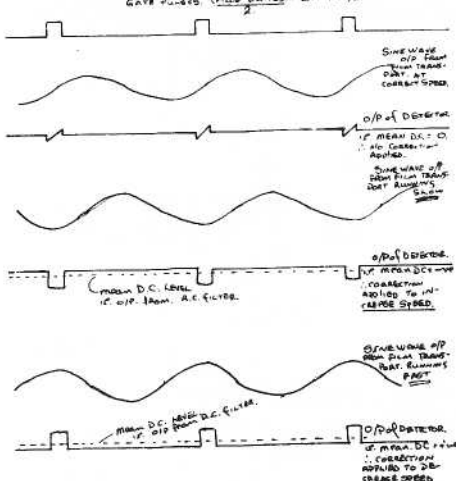 GATE PULSES.
2
SINE WAVE
O/P FROM
FILM TRANS-
PORT. AT
CORRECT SPEED.
O/P of DETECTOR
I.E. MEAN D.C. = O.
∴ NO CORRECTION
APPLIED.
SINE WAVE O/P
FROM FILM TRANS-
PORT RUNNING
SLOW
O/P of DETECTOR.
I.E. MEAN DC = -VE
∴ CORRECTION
APPLIED TO IN-
CREASE SPEED.
MEAN D.C. LEVEL
I.E. O/P. FROM R.C. FILTER.
SINE WAVE O/P
FROM FILM TRANS-
PORT. RUNNING
FAST
MEAN D.C. LEVEL
I.E. O/P FROM R.C. FILTER.
O/P of DETECTOR.
I.E. MEAN DC = +VE
∴ CORRECTION
APPLIED TO DE-
CREASE SPEED